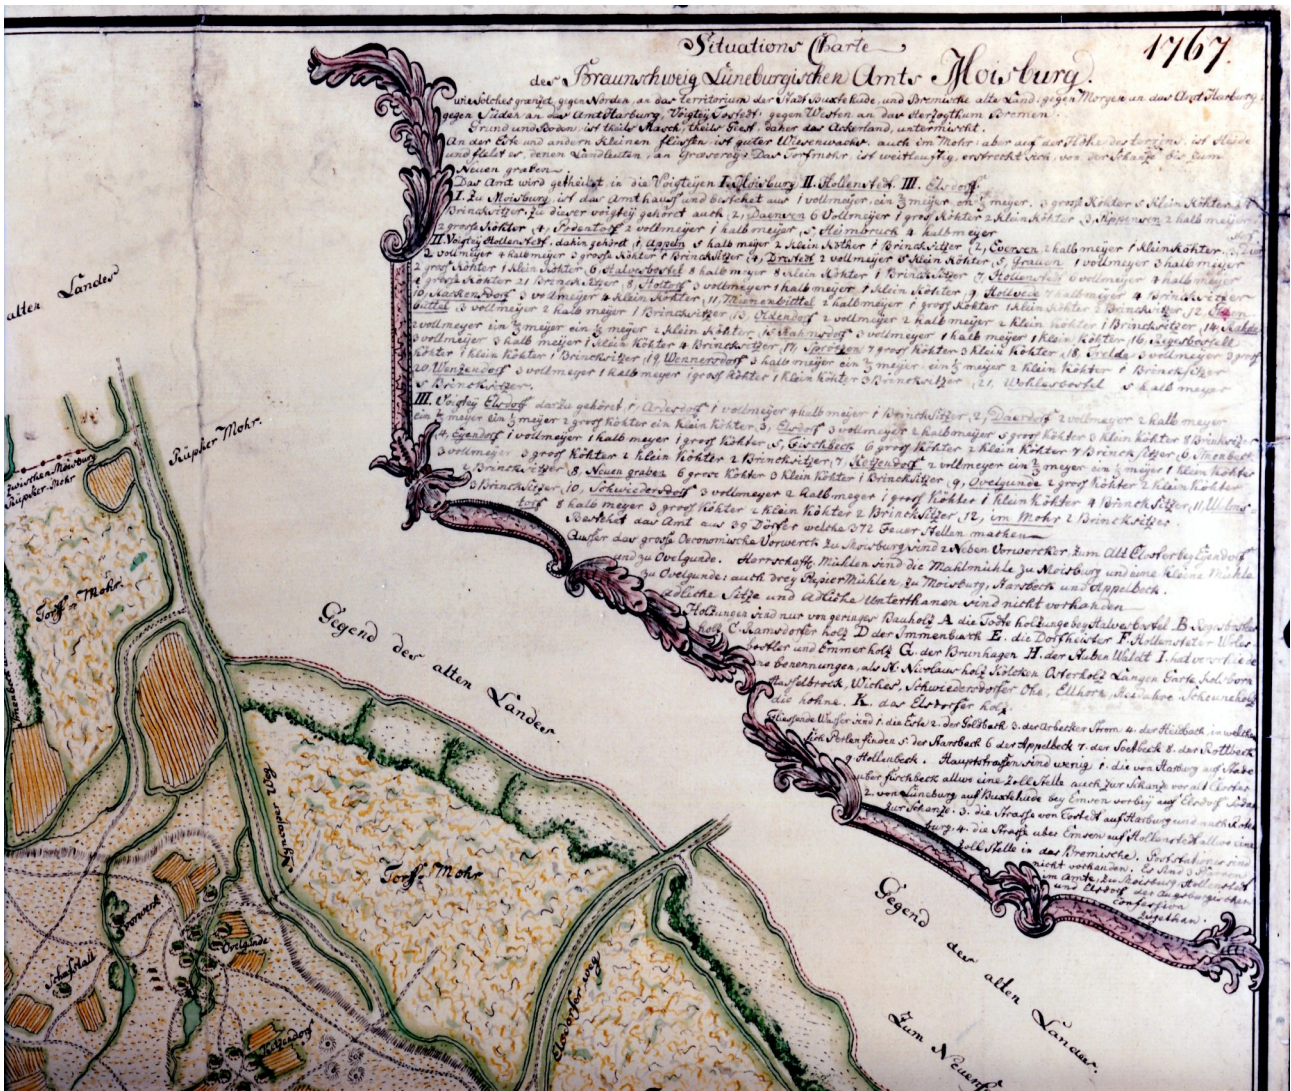 Situations Charte
1767.
des Braunschweig Lüneburgischen Amts Moisburg.
wie solches grenzt gegen Norden, an das territorium der Stadt Buxtehude, und Bremische alte Land: gegen Morgen an das Amt Harburg;
gegen Süden an das Amt Harburg, Voigtey Tostedt: gegen Westen an das Herzogthum Bremen.
Grund und Boden, ist theils Masch, theils Geest, daher das Ackerland, untermischt.
An der Este und andern kleinen flüssen, ist guter Wiesenwachs, auch im Mohr: aber auf der Höhe des terrains, ist Heide
und fielet es, denen Landleuten, an Graserey: Das Torfmohr, ist weitleuftig, erstreckt sich, von der Schanze bis zum
Neuen graben
Das Amt wird getheilet in die Voigteyen I. Moisburg II. Hollenstedt III. Elsdorf.
I. Zu Moisburg, ist das Amthauss und bestehet aus 1 vollmeyer, ein ¾ meyer, ein ½ meyer. 3 gross Köhter 5 klein Köhter
Brincksitzer. Zu dieser voigtey gehöret auch (2, Daensen 6 Vollmeyer 1 gross Köhter 2 klein Köhter (3, Appensen 2 halb meyer
2 grosse Köhter (4, Podendorf 2 vollmeyer 1 halb meyer (5, Heimbruck 4 halb meyer
II. Voigtey Hollenstedt, dahin gehöret (1, Appeln 5 halb meyer 2 klein Köther 1 Brincksitzer (2, Eversen 2 halb meyer 1 klein Köhter
2 vollmeyer 4 halb meyer 3 grosse Köhter 1 Brincksitzer (4, Drestedt 2 vollmeyer 5 klein Köhter (5, Grauen 1 vollmeyer 3 halb meyer
2 gross Köhter 1 klein Köhter (6, Halvesbostel 8 halb meyer 8 klein Köhter 1 Brincksitzer (7, Hollenstedt 6 vollmeyer 4 halb meyer
4 grosse Köhter 21 Brincksitzer (8, Holtorf 3 vollmeyer 1 halb meyer 1 klein Köhter (9, Hollvede 7 halb meyer 4 Brincksitzer
10, Kackensdorf 3 vollmeyer 4 klein Köhter (11, Tiemenbüttel 2 halb meyer 1 gross Köhter 1 klein Köhter 2 Brincksitzer (12,
büttel 3 vollmeyer 2 halb meyer 1 Brincksitzer (13, Oldendorf 2 vollmeyer 2 halb meyer 2 klein Köhter 1 Brincksitzer (14,
2 vollmeyer ein ¾ meyer ein ½ meyer 2 klein Köhter (15, Rahmstorf 3 vollmeyer 1 halb meyer 1 klein Köhter (16, Regesbostell
3 vollmeyer 3 halb meyer 1 klein Köhter 4 Brincksitzer (17, Sprötzen 7 gross Köhter 3 klein Köhter (18, Trelde 3 vollmeyer 3 gross
Köhter 1 klein Köhter 1 Brincksitzer (19, Wennersdorf 3 halb meyer ein ¾ meyer ein ½ meyer 2 klein Köhter 1 Brincksitzer
20, Wenzendorf 3 vollmeyer 1 halb meyer 1 gross Köhter 1 klein Köhter 3 Brincksitzer (21, Wohlesbostel 5 halb meyer
5 Brincksitzer.
III. Voigtey Elsdorf darzu gehöret, (1, Ardesdorf 1 vollmeyer 4 halb meyer 1 Brincksitzer (2, Daerdorf 2 vollmeyer 2 halb meyer
ein ¾ meyer ein ½ meyer 2 gross Köhter ein klein Köhter (3, Elsdorf 3 vollmeyer 2 halb meyer 5 gross Köhter 3 klein Köhter 8 Brincksitzer
(4, Eyendorf 1 vollmeyer 1 halb meyer 1 gross Köhter (5, Fischbeck 6 gross Köhter 2 klein Köhter 7 Brincksitzer (6, Immenbeck
3 vollmeyer 3 gross Köhter 2 klein Köhter 2 Brincksitzer (7, Ketzendorf 2 vollmeyer ein ¾ meyer ein ½ meyer 1 klein Köhter
2 Brincksitzer (8, Neuen graben 6 gross Köhter 3 klein Köhter 1 Brincksitzer (9, Ovelgunde 2 gross Köhter 2 klein Köhter
3 Brincksitzer (10, Schwiedersdorf 3 vollmeyer 2 halb meyer 1 gross Köhter 1 klein Köhter 4 Brincksitzer (11, Wulms
torf 8 halb meyer 3 gross Köhter 2 klein Köhter 2 Brincksitzer (12, im Mohr 2 Brincksitzer
Bestehet das Amt aus 39 Dörfer welche 372 Feuer Stellen machen
Ausser das grosse Oeconomische Vorwerck zu Moisburg sind 2 Neben Vorwercker, zum Alt Closter bey Eyendorf
und zu Ovelgunde. Herrschaftl. Mühlen sind die Mahlmühle zu Moisburg und eine kleine Mühle
zu Ovelgunde: auch drey Papier Mühlen, zu Moisburg, Harsbeck und Appelbeck.
Adliche Sitze und Adliche Unterthanen sind nicht vorhanden
Holzungen sind nur von geringes Bauholz A die Todte holzunge bey Halvesbostel B Regesbostler
holz C. Ramsdorfer holz D der Immenbeck E. die Dorfheister F. Hollensteter Woles
bostler und Emmer holz G. der Brunhagen H. der Auben Waldt I. hat verschiede
ne benennungen, als St. Nicolaus holz Kölcken Osterholz Langen Garke holz born
Hasselbrock, Wiches, Schwiedersdorfer Ohe, Ellhorn Scheuneholz
die höhne. K. das Elstorfer holz
Fliessende Wasser sind 1. die Este 2. der Goldbeck 3. der Arbecker Strom 4. der Heidbach, in welchem
sich Perlen finden 5. der Harsbeck 6 der Appelbeck 7. der Soetbeck 8. der Rottbeck
9. Hollenbeck. Hauptstrassen sind wenig 1. die von Harburg auf Stade
über fischbeck allwo eine Zoll Stelle auch zur Schanze vor alt Closter
2. von Lüneburg auf Buxtehude bey Emsen vorbey auf Elsdorf
zur Schanze. 3. die Strasse von Tostedt auf Harburg und nach Roten
burg. 4. die Strasse über Emsen auf Hollenstedt allwo eine
Zoll Stelle in das Bremische. Poststationes sind
nicht vorhanden. Es sind 3 Pfarren
im Amte, zu Moisburg, Hollenstedt
und Elsdorf der Augsburgischen
Confession
zugethan
alten Landes
Rüpker Mohr.
zwischen Moisburg
Rüpker Mohr
Torff Mohr
Gegend des alten Landes
Torff Mohr
Vorwerk
Ovelgünde
Schafstall
Ketzendorf
Elsdorfer weg
Gegend des alten Landes
Zum Neuenf